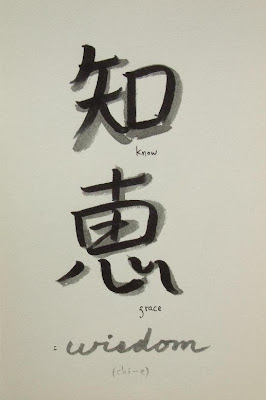 知
know
恵
grace
: wisdom
(chi-e)